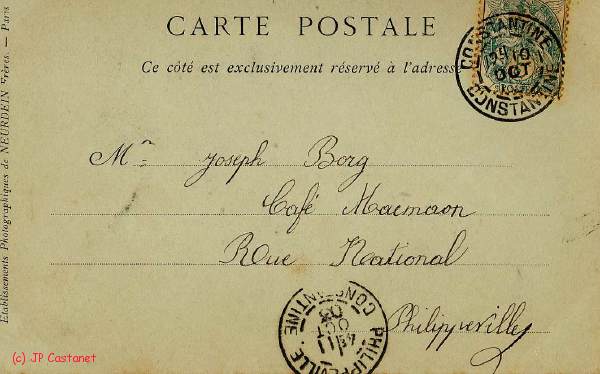 CARTE POSTALE
Ce côté est exclusivement réservé à l'adresse
CONSTANTINE
OCT
CONSTANTINE
Etablissements Photographiques de NEURDEIN Frères. — Paris
Mr Joseph Borg
Café Macmaon
Rue National
Philippeville
PHILIPPEVILLE
CONSTANTINE
11
OCT
03
(c) JP Castanet